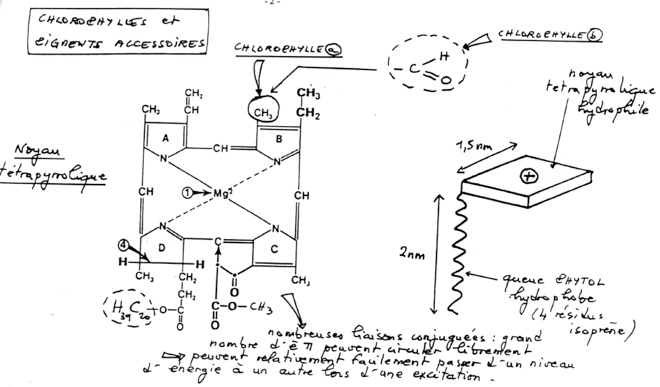 -2-
CHLOROPHYLLES et
PIGMENTS ACCESSOIRES
CHLOROPHYLLE ⓐ
CHLOROPHYLLE ⓑ
-C
H
O
noyau
tétrapyrrolique
hydrophile
1,5nm
⊕
2nm
queue PHYTOL
hydrophobe
(4 résidus
isoprène)
Noyau
tétrapyrrolique
CH₂
CH
CH₃
CH₃
CH₃
CH₂
A
B
CH
N
N
CH
① Mg²
CH
N
N
④
D
C
C
H
H
CH₃
CH₂
CH₂
O
CH₃
C
O
C-O-CH₃
O
H₃₉C₂₀
-O-C
O
nombreuses liaisons conjuguées : grand
nombre d'é π peuvent circuler librement
⇒ peuvent relativement facilement passer d'un niveau
d'énergie à un autre lors d'une excitation.